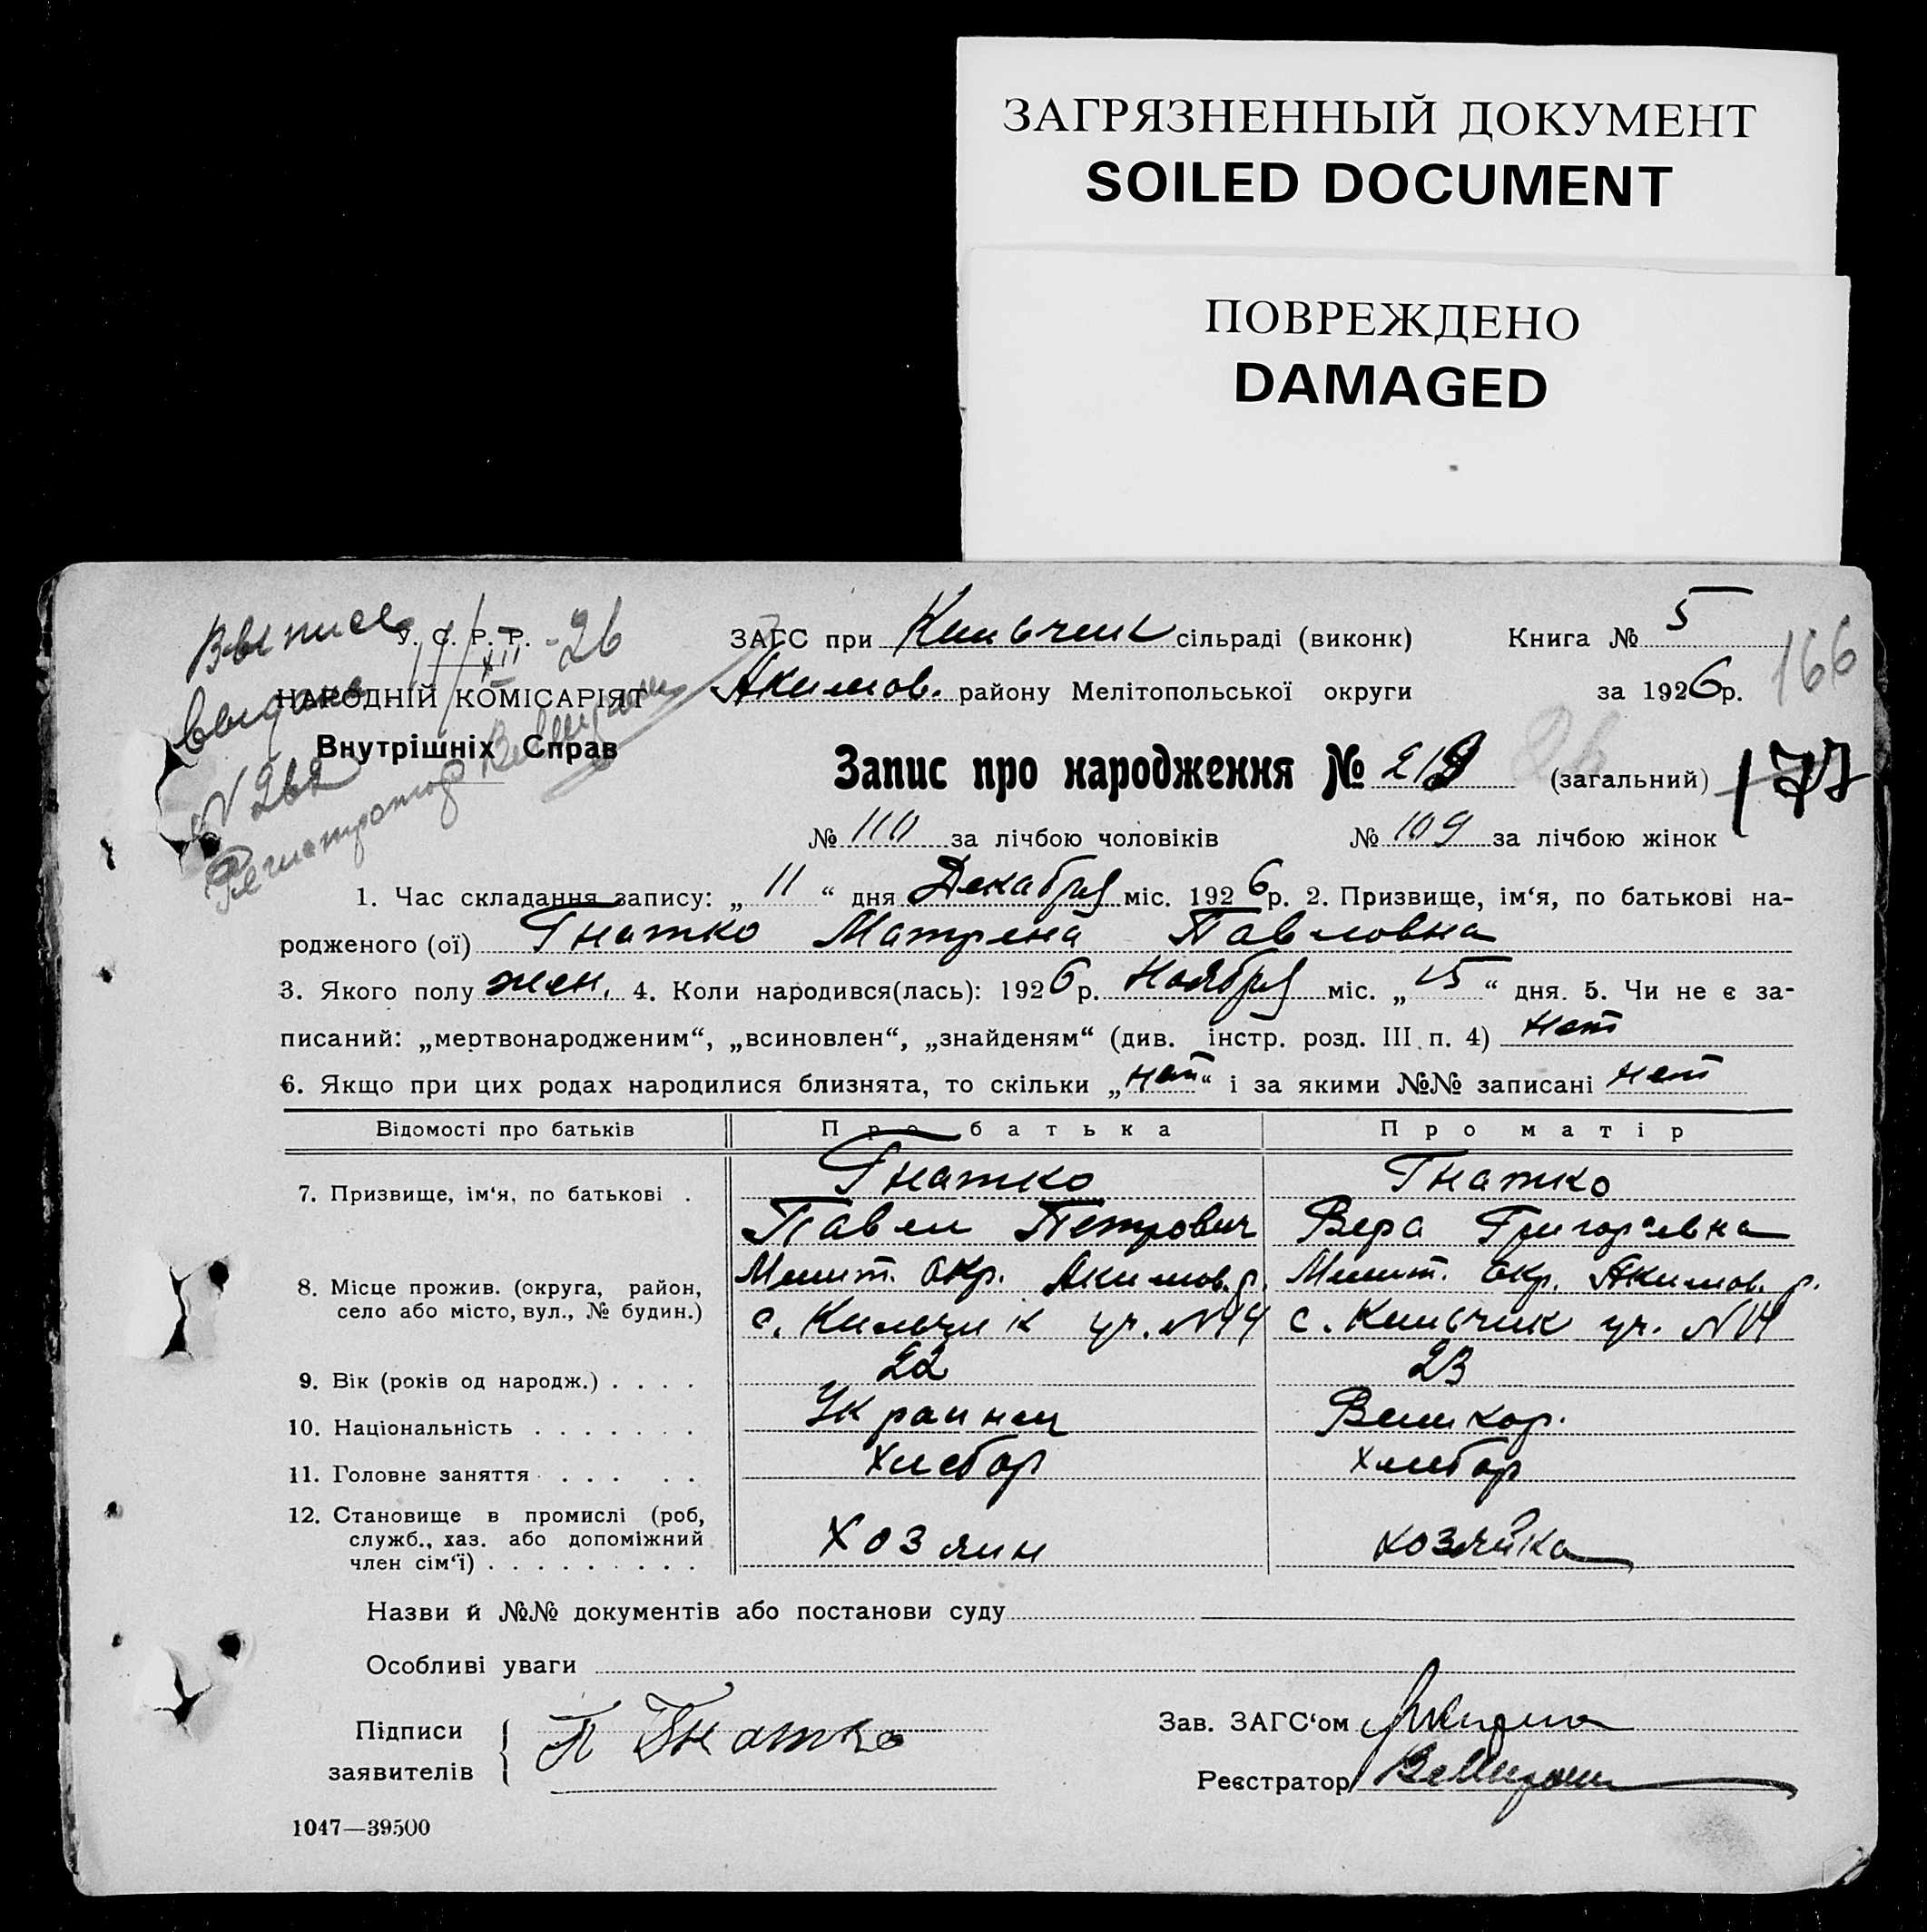 ЗАГРЯЗНЕННЫЙ ДОКУМЕНТ
SOILED DOCUMENT
ПОВРЕЖДЕНО
DAMAGED
Выпись
выдана 11/XII-26
N 262
Регистратор
166
177
У. С. Р. Р.
НАРОДНІЙ КОМІСАРІЯТ
Внутрішніх Справ
ЗАГС при Кильчик сільраді (виконк) Книга № 5
Акимов. району Мелітопольської округи за 1926р.
Запис про народження № 219 (загальний)
№ 110 за лічбою чоловіків № 109 за лічбою жінок
1. Час складання запису: „ 11 “ дня Декабря міс. 1926р. 2. Призвище, ім‘я, по батькові на-
родженого (ої) Гнатко Матрена Павловна
3. Якого полу жен. 4. Коли народився(лась): 1926р. Ноября міс. „ 15 “ дня. 5. Чи не є за-
писаний: „мертвонародженим“, „всиновлен“, „знайденям“ (див. інстр. розд. III п. 4) нет
6. Якщо при цих родах народилися близнята, то скільки „нет“ і за якими №№ записані нет
Відомості про батьків Про батька Про матір
7. Призвище, ім‘я, по батькові . Гнатко Гнатко
Павел Петрович Вера Григорьевна
8. Місце прожив. (округа, район, село або місто, вул., № будин.) Мелит. окр. Акимов. р. Мелит. окр. Акимов. р.
с. Кильчик уч. N 14 с. Кильчик уч. N 14
9. Вік (років од народж.) . . . . 22 23
10. Національність . . . . . . . Украинец Великор.
11. Головне заняття . . . . . Хлебор Хлебор
12. Становище в промислі (роб, служб., хаз. або допоміжний член сім‘ї) . . . . . . . . . Хозяин хозяйка
Назви й №№ документів або постанови суду
Особливі уваги
Підписи заявителів { П Гнатко
Зав. ЗАГС‘ом
Реєстратор
1047—39500